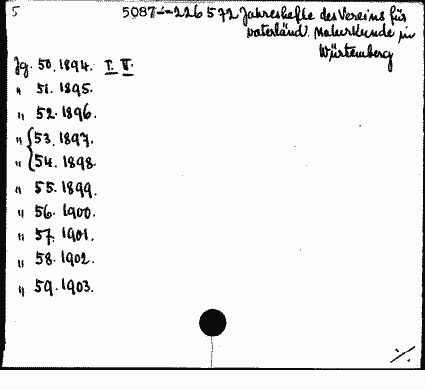 5 5087-226 572 Jahreshefte des Vereins für
vaterländ. Naturkunde in
Würtemberg
Jg. 50. 1894. I. II.
" 51. 1895.
" 52. 1896.
" 53. 1897.
" 54. 1898.
" 55. 1899.
" 56. 1900.
" 57. 1901.
" 58. 1902.
" 59. 1903.